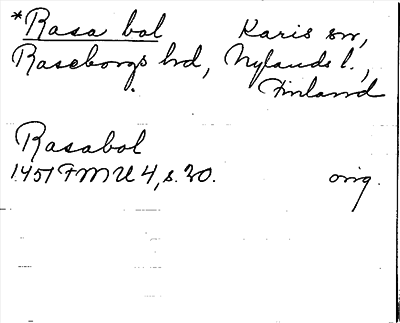 *Rasa bol Karis sn,
Raseborgs hd, Nylands l.,
Finland
Rasabol
1451 FMU 4, s. 20. orig.